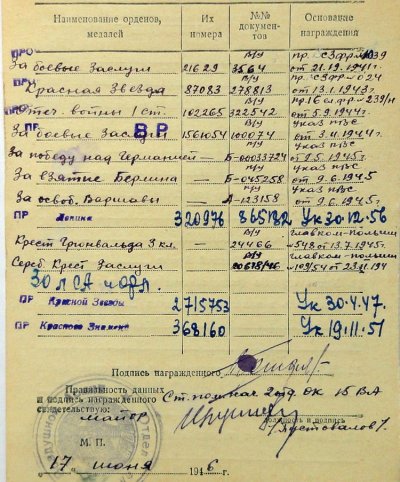 Наименование орденов, медалей | Их номера | №№ документов | Основание награждения
ПРО
За боевые Заслуги 21629 В/у 3564 пр. СЗФР № 039 от 28.12.1941г.
Красная Звезда 87083 В/у 278813 пр. СЗФ № 024 от 13.1.1943г.
Отеч войны 1 ст. 102265 В/у 322542 от 5.9.1944г.
ПР
За боевые Заслуги В.Р. 1561054 В/у 100074 Указ ПВС от 3.11.1944г.
За победу над Германией — Б-00033724 Указ ПВС от 9.5.1945г.
За взятие Берлина — Б-045258 Указ ПВС от 9.6.1945
За освоб. Варшавы — А-123158 Указ ПВС от 9.6.1945
ПР Ленина 320976 865182 Ук 30.12.56
Крест Грюнвальда 3 кл. — 24466 главком-польши № 548 от 13.7.1945г.
Сереб. Крест Заслуги — главком-польши
30 л СА и фл.
ПР Красной Звезды 2715753 Ук 30.4.47.
ПР Красного Знамени 368160 Ук 19.11.51
Подпись награжденного
Правильность данных
и подпись награжденного
свидетельствую: Ст. пом. нач. 2 отд. ОК 15 ВА
майор
должность и подпись
М. П. /Пустовалов/.
"17" июня 1946г.